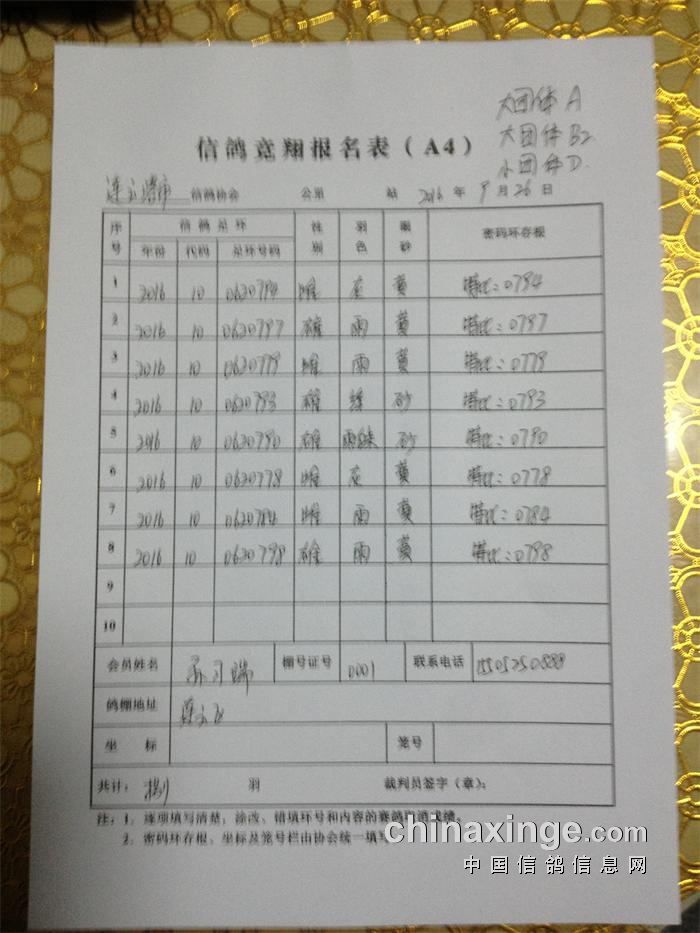 大团体 A
大团体 B2
小团体 D.
信鸽竞翔报名表（A4）
连云港市 信鸽协会 公里 站 2016 年 9 月 26 日
序号 信鸽足环 性别 羽色 眼砂 密码环存根
年份 代码 足环号码
1 2016 10 0620794 雌 灰 黄 特比：0794
2 2016 10 0620797 雄 雨 黄 特比：0797
3 2016 10 0620779 雌 雨 黄 特比：0779
4 2016 10 0620793 雄 绛 砂 特比：0793
5 2016 10 0620790 雄 雨绛 砂 特比：0790
6 2016 10 0620778 雌 灰 黄 特比：0778
7 2016 10 0620784 雌 雨 黄 特比：0784
8 2016 10 0620798 雄 雨 黄 特比：0798
9
10
会员姓名 棚号证号 0001 联系电话 15505250888
鸽棚地址 连云区
坐标 笼号
共计： 捌 羽 裁判员签字（章）：
注：1、逐项填写清楚，涂改、错填环号和内容的赛鸽取消成绩。
2、密码环存根、坐标及笼号栏由协会统一填写
chinaxinge.com
中国信鸽信息网